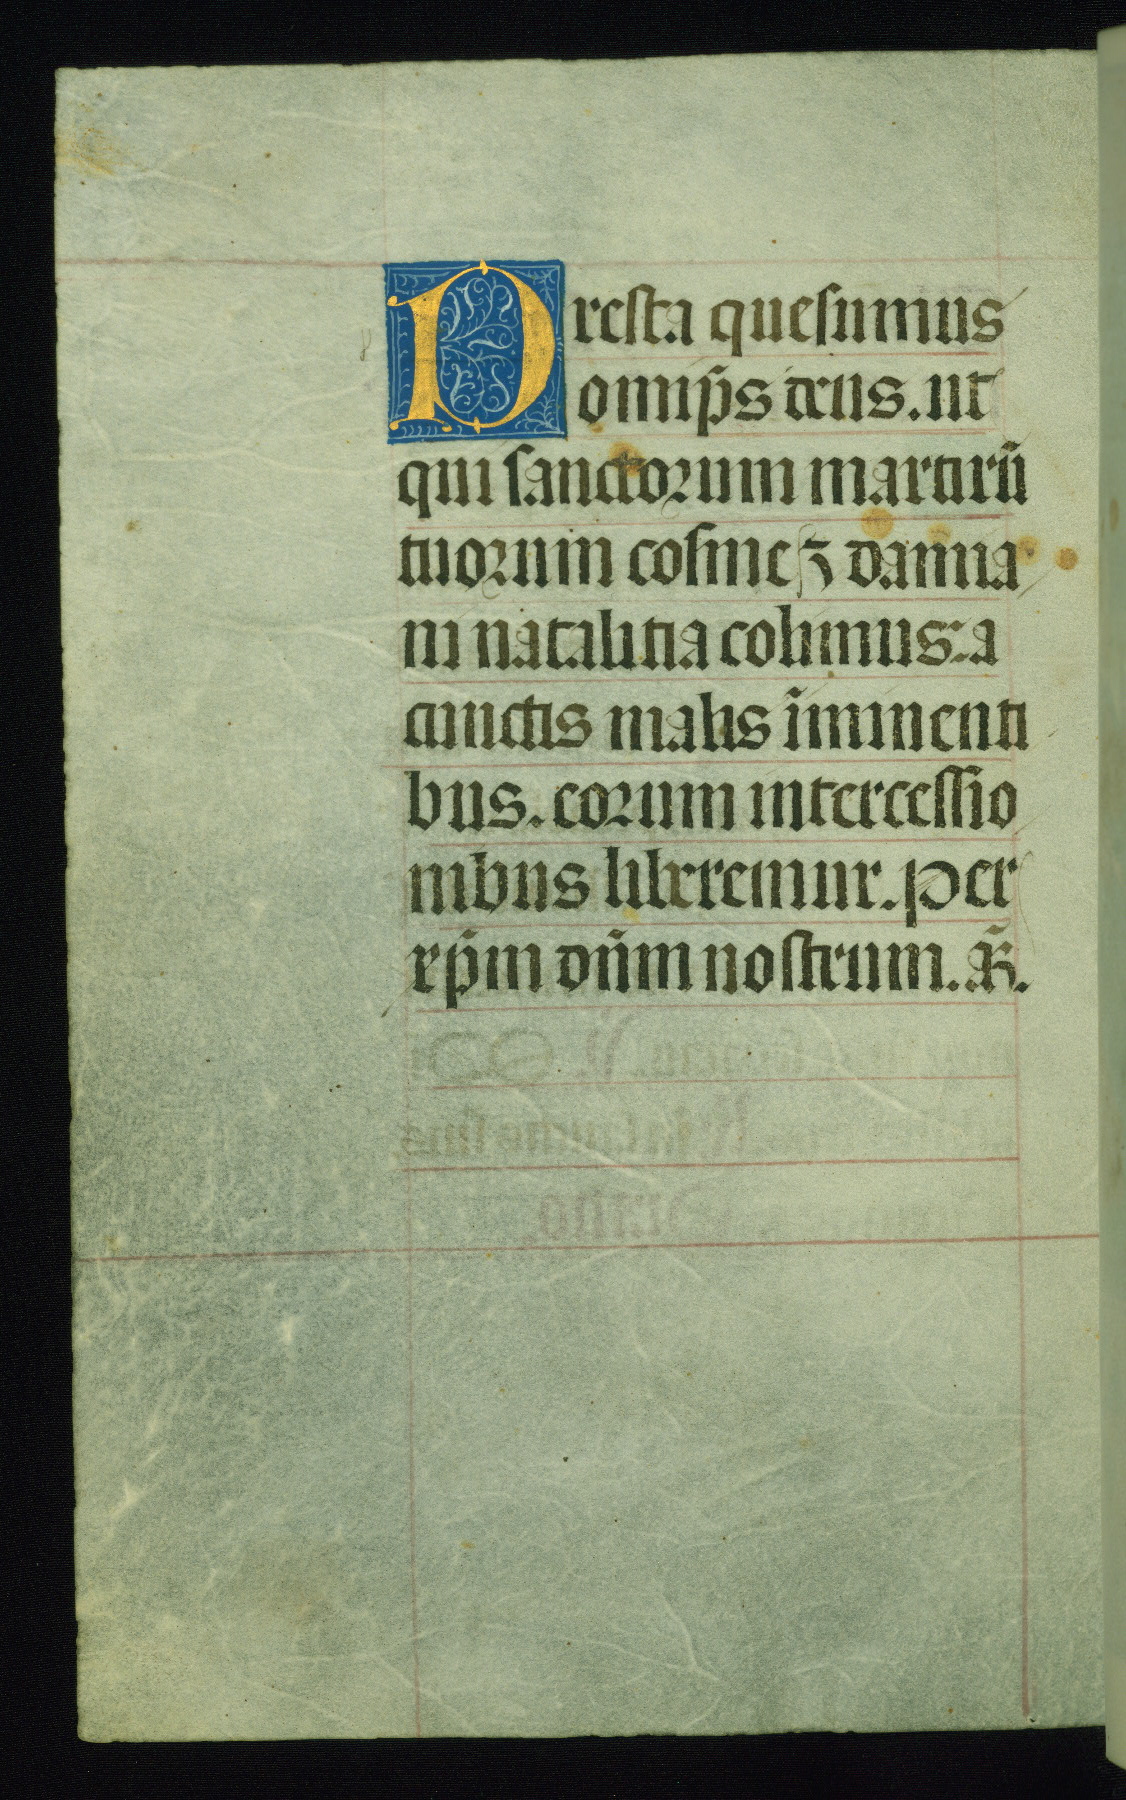 Presta quesumus
omnip̄s deus. ut
qui sanctorum martirū
tuorum cosme ⁊ damia
ni natalitia colimus: a
cunctis malis īminenti
bus. eorum intercessio
nibus liberemur. Per
xp̄m dn̄m nostrum. R̄.